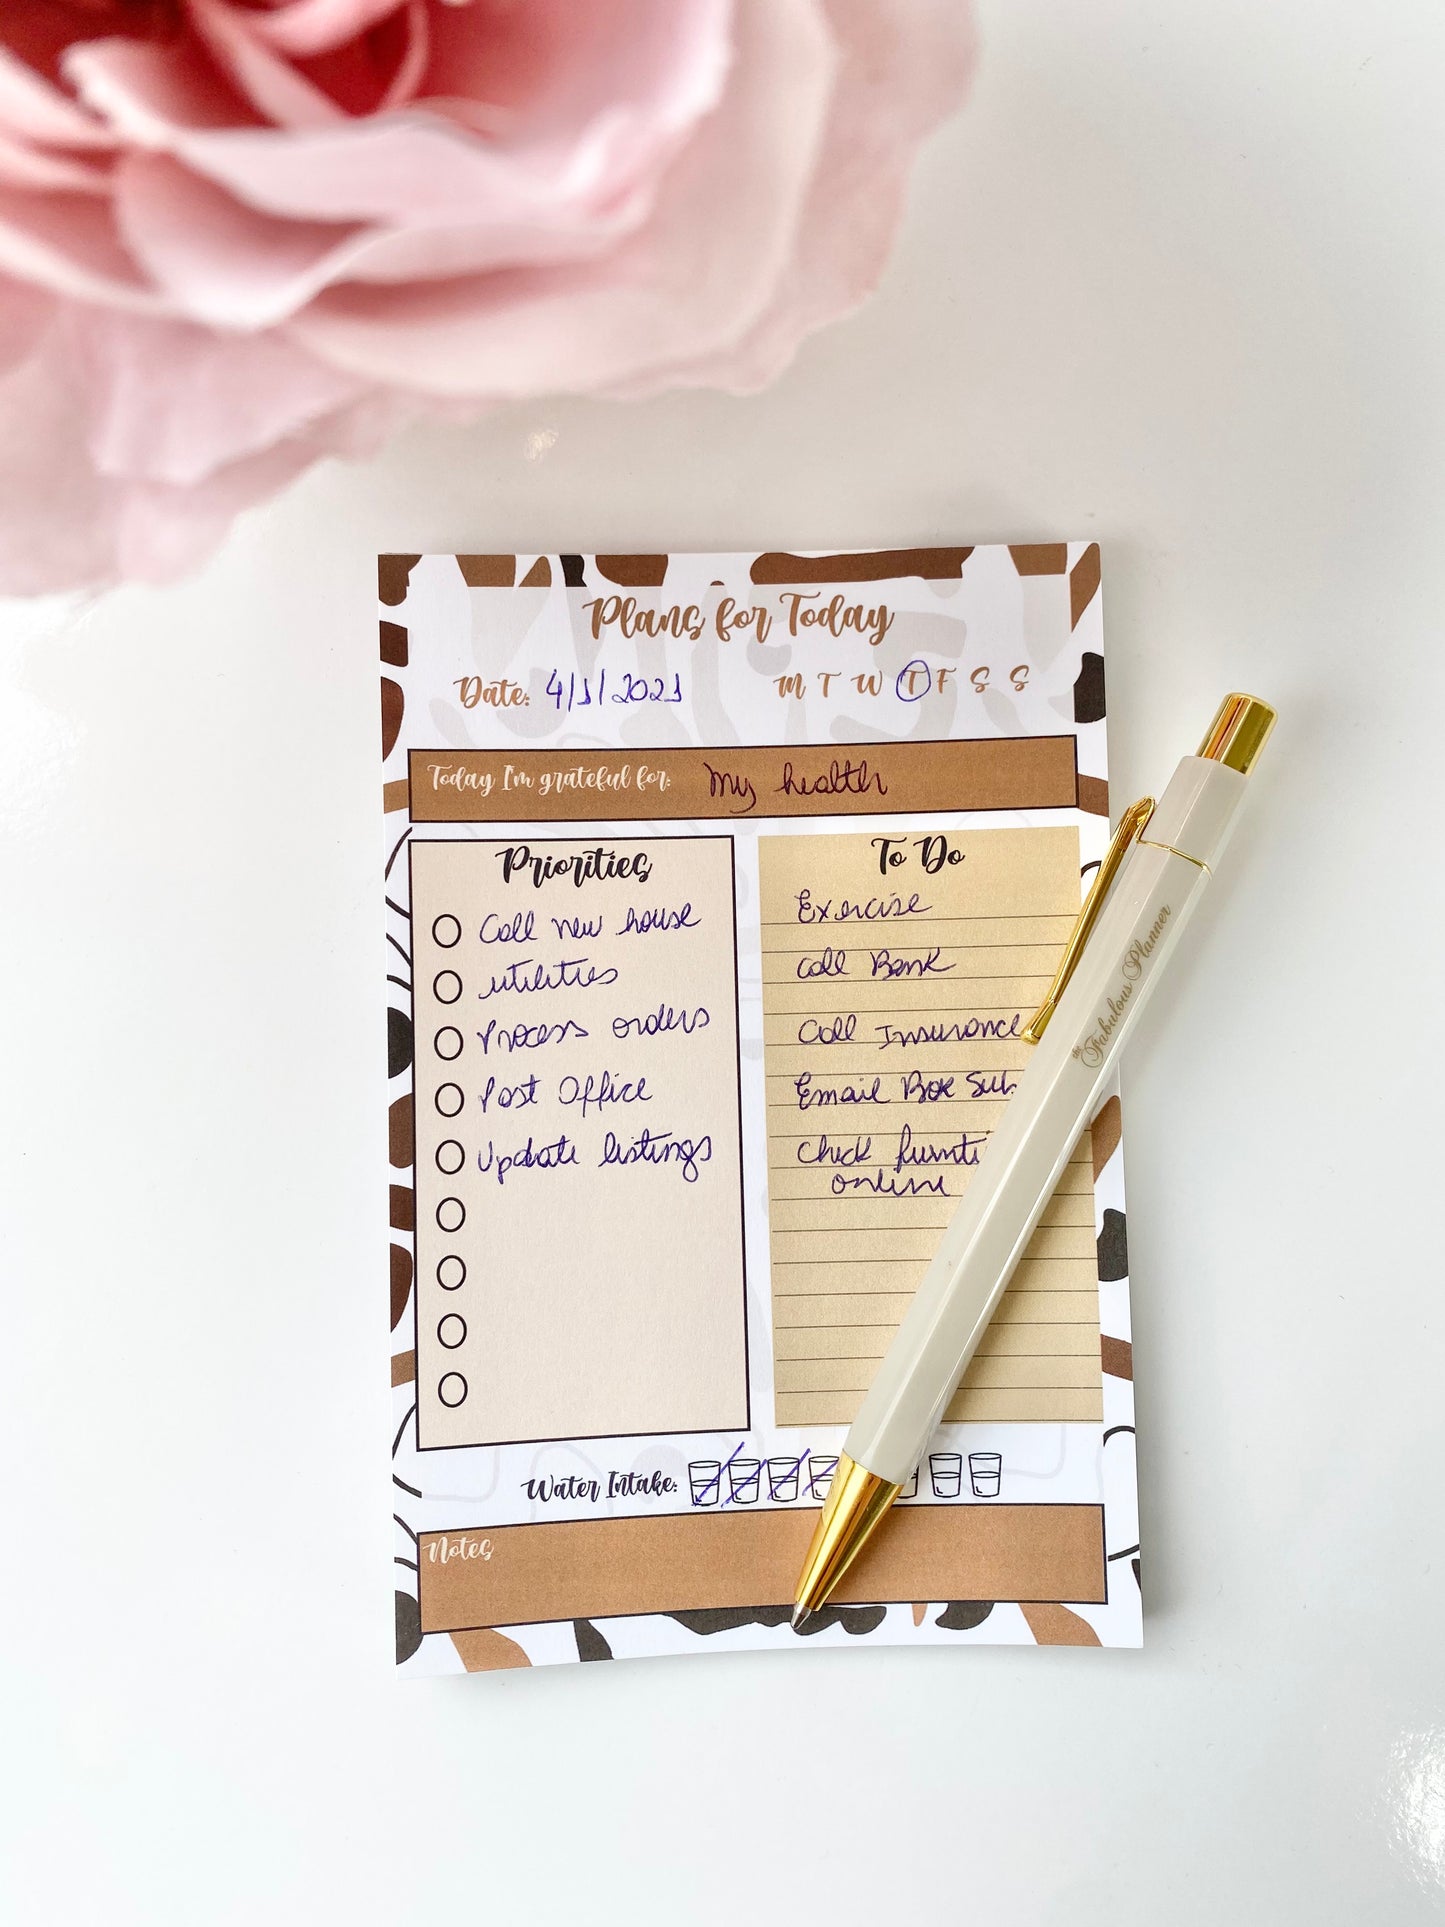 Plans for Today
Date: 4/1/2021 M T W T F S S
Today I'm grateful for: My health
Priorities
Call new house
utilities
Process orders
Post Office
Update listings
To Do
Exercise
Call Bank
Call Insurance
Email Box
Check
online
the Fabulous Planner
Water Intake:
Notes